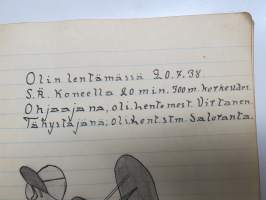 Olin lentämässä 20.7.38.
S.Ä. Koneella 20 min. 300 m. korkeudes.
Ohjaajana, oli. lentomest. Virtanen.
Tähystäjänä, oli. lent. stm. Saloranta.